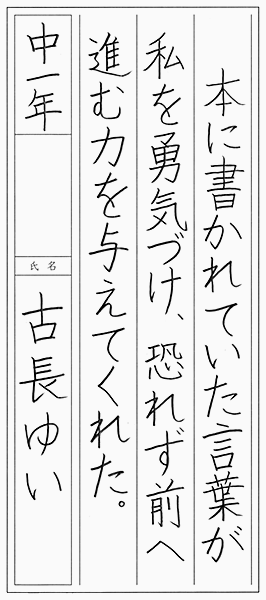 本に書かれていた言葉が
私を勇気づけ、恐れず前へ
進む力を与えてくれた。
中一年
氏名
古長ゆい